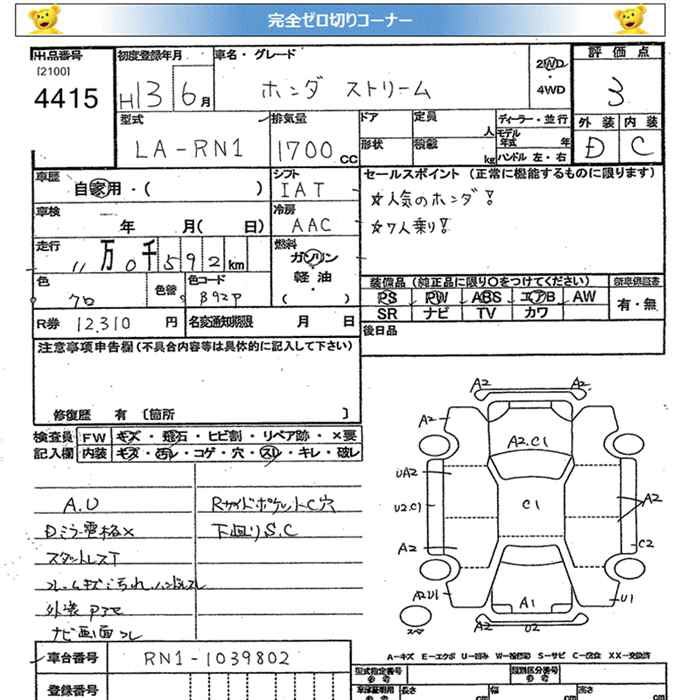 完全ゼロ切りコーナー
出品番号
[2100]
4415
初度登録年月
H13 6月
車名・グレード
ホンダ ストリーム
2WD
・
4WD
評価点
3
外装 内装
D C
型式
LA-RN1
排気量
1700 CC
ドア
定員
人
ディーラー・並行
モデル年式 年
形状
積載
kg
ハンドル 左・右
車歴
自家用・( )
シフト
IAT
車検
年 月( 日)
冷房
AAC
走行
11万0千592km
燃料
ガソリン
軽油
( )
色
クロ
色替
色コード
B92P
R券 12,310 円
名変通知期限 月 日
セールスポイント (正常に機能するものに限ります)
☆人気のホンダ!
☆7人乗り!
装備品 (純正品に限り○をつけてください)
PS PW ABS エアB AW
SR ナビ TV カワ
新車保証書
有・無
後日品
注意事項申告欄 (不具合内容等は具体的に記入して下さい)
修復歴 有 [箇所 ]
検査員
記入欄
FW キズ・飛石・ヒビ割・リペア跡・×要
内装 キズ・汚レ・コゲ・穴・スレ・キレ・破レ
A.U
Dミラー電格×
スタットレスT
ナビ画面コレ
RサイドポケットC穴
下回りS.C
A2 A2
A2
A2.C1
UA2
U2.C1
C1
A2
A2
C2
A2U1
A1
U1
A2 U2
A-キズ E-エクボ U-凹み W-補修跡 S-サビ C-腐食 XX-交換済
車台番号
RN1-1039802
登録番号
型式指定番号
参考
類別区分番号
参考
長さ cm
幅 cm
高さ cm